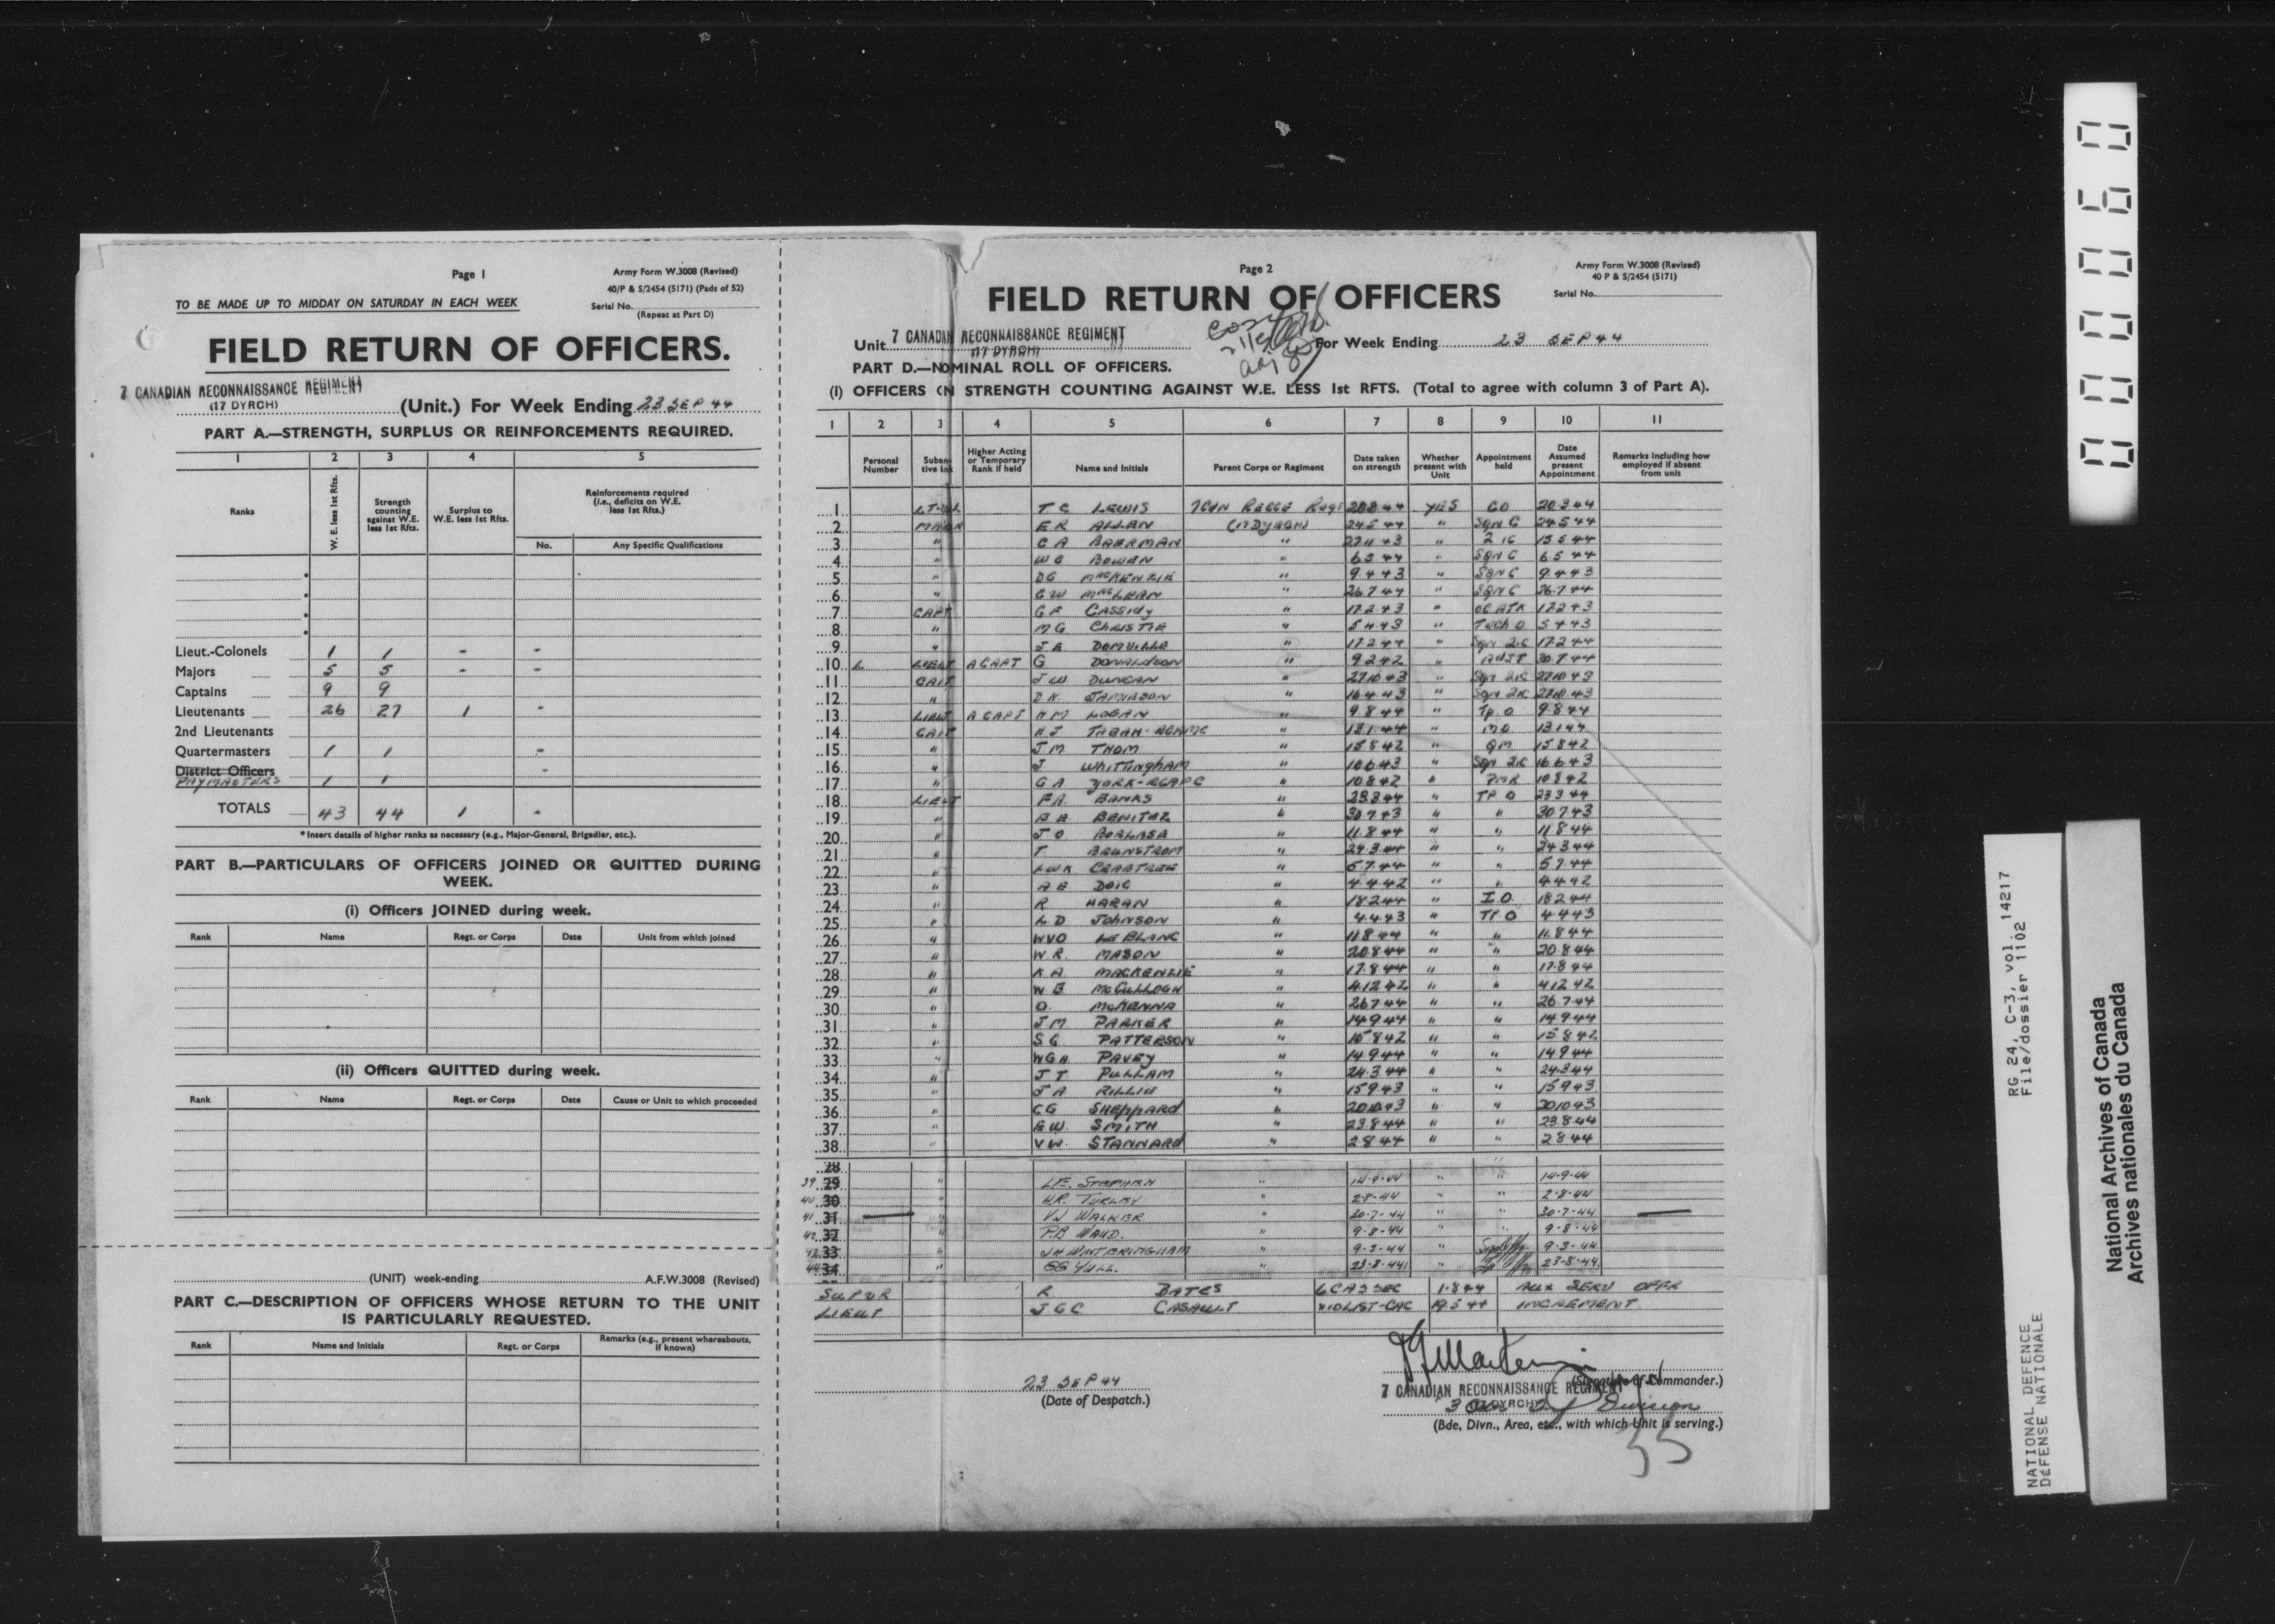 Page 1
Army Form W.3008 (Revised)
40/P & S/2454 (5171) (Pads of 52)
TO BE MADE UP TO MIDDAY ON SATURDAY IN EACH WEEK
Serial No.
(Repeat at Part D)
FIELD RETURN OF OFFICERS.
7 CANADIAN RECONNAISSANCE REGIMENT
(17 DYRCH)
(Unit.) For Week Ending 23 SEP 44
PART A.—STRENGTH, SURPLUS OR REINFORCEMENTS REQUIRED.
1 2 3 4 5
Ranks
W. E. less 1st Rfts.
Strength counting against W.E. less 1st Rfts.
Surplus to W.E. less 1st Rfts.
Reinforcements required (i.e., deficits on W.E. less 1st Rfts.)
No. Any Specific Qualifications
Lieut.-Colonels 1 1 - -
Majors 5 5 - -
Captains 9 9
Lieutenants 26 27 1 -
2nd Lieutenants
Quartermasters 1 1 -
District Officers -
PAYMASTERS 1 1
TOTALS 43 44 1 -
* Insert details of higher ranks as necessary (e.g., Major-General, Brigadier, etc.).
PART B.—PARTICULARS OF OFFICERS JOINED OR QUITTED DURING
WEEK.
(i) Officers JOINED during week.
Rank Name Regt. or Corps Date Unit from which joined
(ii) Officers QUITTED during week.
Rank Name Regt. or Corps Date Cause or Unit to which proceeded
(UNIT) week-ending A.F.W.3008 (Revised)
PART C.—DESCRIPTION OF OFFICERS WHOSE RETURN TO THE UNIT
IS PARTICULARLY REQUESTED.
Rank Name and Initials Regt. or Corps Remarks (e.g., present whereabouts, if known)
Page 2
Army Form W.3008 (Revised)
40 P & S/2454 (5171)
Serial No.
FIELD RETURN OF OFFICERS
Unit 7 CANADIAN RECONNAISSANCE REGIMENT
(17 DYRCH)
For Week Ending 23 SEP 44
PART D.—NOMINAL ROLL OF OFFICERS.
(i) OFFICERS ON STRENGTH COUNTING AGAINST W.E. LESS 1st RFTS. (Total to agree with column 3 of Part A).
1 2 3 4 5 6 7 8 9 10 11
Personal Number
Higher Acting or Temporary Rank if held
Name and Initials
Parent Corps or Regiment
Date taken on strength
Whether present with Unit
Appointment held
Date Assumed present Appointment
Remarks including how employed if absent from unit
1 T C LEWIS 20 3 44 YES CO 20 3 44
2 MAJOR E R ALLEN (17 DYRCH) 24 5 44 " SQN C 24 5 44
3 " C A BAERMAN " 27 11 43 " 2 IC 15 5 44
4 " W C BOWEN " 6 5 44 " SQN C 6 5 44
5 " D G MacKENZIE " 9 4 43 " SQN C 9 4 43
6 " G W MacLEAN " 26 7 44 " SQN C 26 7 44
7 CAPT G F CASSIDY " 17 2 43 " OC ATK 17 2 43
8 " M G CHRISTIE " 5 4 43 " Tech O 5 4 43
9 " J E DOMVILLE " 17 2 44 " Sqn 2ic 17 2 44
10 L LIEUT A CAPT G DONALDSON " 9 2 42 " ADJT 30 7 44
11 CAPT J W DUNCAN " 27 10 43 " Sqn 2ic 27 10 43
12 " D K JAMIESON " 16 4 43 " Sqn 2ic 27 10 43
13 LIEUT A CAPT H M LOGAN " 9 8 44 " Tp O 9 8 44
14 CAPT H J 13 1 44 " MO 13 1 44
15 " J M THOM " 15 8 42 " QM 15 8 42
16 " J WHITTINGHAM " 10 6 43 " Sqn 2ic 16 6 43
17 " G A YORK-RCAPC " 10 8 42 " PMR 10 8 42
18 LIEUT F A BANKS " 23 3 44 " TP O 23 3 44
19 " BENITEZ " 30 7 43 " " 30 7 43
20 " J O BORLASE " 11 8 44 " " 11 8 44
21 " T BRUNSTROM " 24 3 44 " " 24 3 44
22 " L W K CRABTREE " 5 7 44 " " 5 7 44
23 " A E DOIG " 4 4 42 " " 4 4 42
24 " R HARAN " 18 2 44 " I.O. 18 2 44
25 " L D JOHNSON " 4 4 43 " TP O 4 4 43
26 " W V O LE BLANC " 11 8 44 " " 11 8 44
27 " W R MASON " 20 8 44 " " 20 8 44
28 " K A MACKENZIE " 17 8 44 " " 17 8 44
29 " W B McCULLOGH " 4 12 42 " " 4 12 42
30 " O McKENNA " 26 7 44 " " 26 7 44
31 " J M PARKER " 14 9 44 " " 14 9 44
32 " S G PATTERSON " 15 8 42 " " 15 8 42
33 " W G H PAVEY " 14 9 44 " " 14 9 44
34 " J T PULLAM " 24 3 44 " " 24 3 44
35 " J A RILLIE " 15 9 43 " " 15 9 43
36 " C G SHEPPARD " 20 10 43 " " 20 10 43
37 " E W SMITH " 23 8 44 " " 23 8 44
38 " V W STANNARD " 2 8 44 " " 2 8 44
28
39 29 " L.E. STEPHEN " 14-9-44 " " 14-9-44
40 30 " H.R. TURLEY " 2-8-44 " " 2-8-44
41 31 " V J WALKER " 30-7-44 " " 30-7-44
42 32 " P.B. WAUD. " 9-8-44 " " 9-8-44
43 33 " J H WINTERINGHAM " 9-3-44 " 9-3-44
44 34 " GG YULL. " 23-8-44 " 23-8-44
SUPVR R BATES 1 8 44 AUX SERV OFFR
LIEUT J G C CASAULT 19 5 44 INCREMENT
23 SEP 44
(Date of Despatch.)
(Signature of Commander.)
7 CANADIAN RECONNAISSANCE REGIMENT
(17 DYRCH)
3 Division
(Bde, Divn., Area, etc., with which Unit is serving.)
55
000060
RG 24, C-3, vol. 14217
File/dossier 1102
NATIONAL DEFENCE
DÉFENSE NATIONALE
National Archives of Canada
Archives nationales du Canada